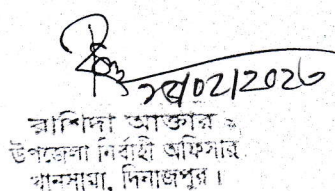 02/2026
রাশিদা আক্তার
উপজেলা নির্বাহী অফিসার
খানসামা, দিনাজপুর।